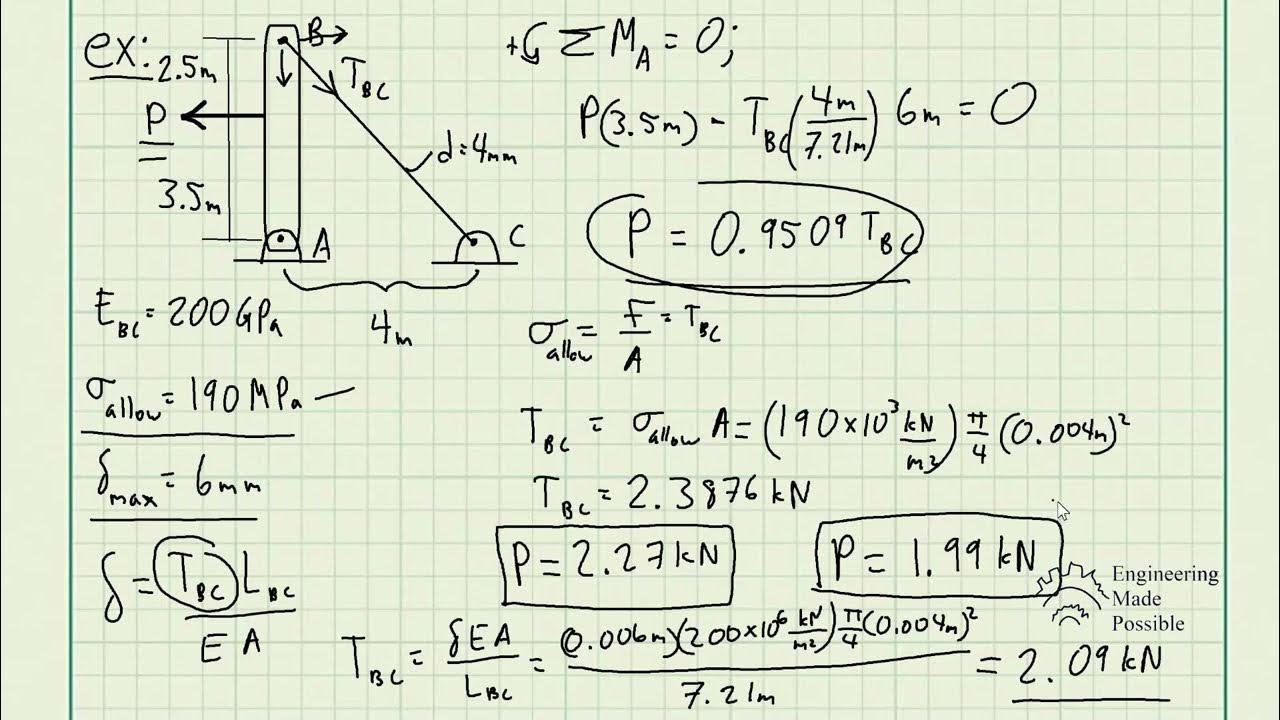 ex:
2.5m
B
T_BC
P
d=4mm
3.5m
A
C
4m
E_BC = 200 GPa
σ_allow = 190 MPa
δ_max = 6mm
δ = T_BC L_BC / E A
+ Σ M_A = 0;
P(3.5m) - T_BC (4m/7.21m) 6m = 0
P = 0.9509 T_BC
σ_allow = F/A = T_BC
T_BC = σ_allow A = (190×10³ kN/m²) π/4 (0.004m)²
T_BC = 2.3876 kN
P = 2.27 kN
P = 1.99 kN
T_BC = δEA / L_BC = (0.006m)(200×10⁶ kN/m²) π/4 (0.004m)² / 7.21m = 2.09 kN
Engineering
Made
Possible